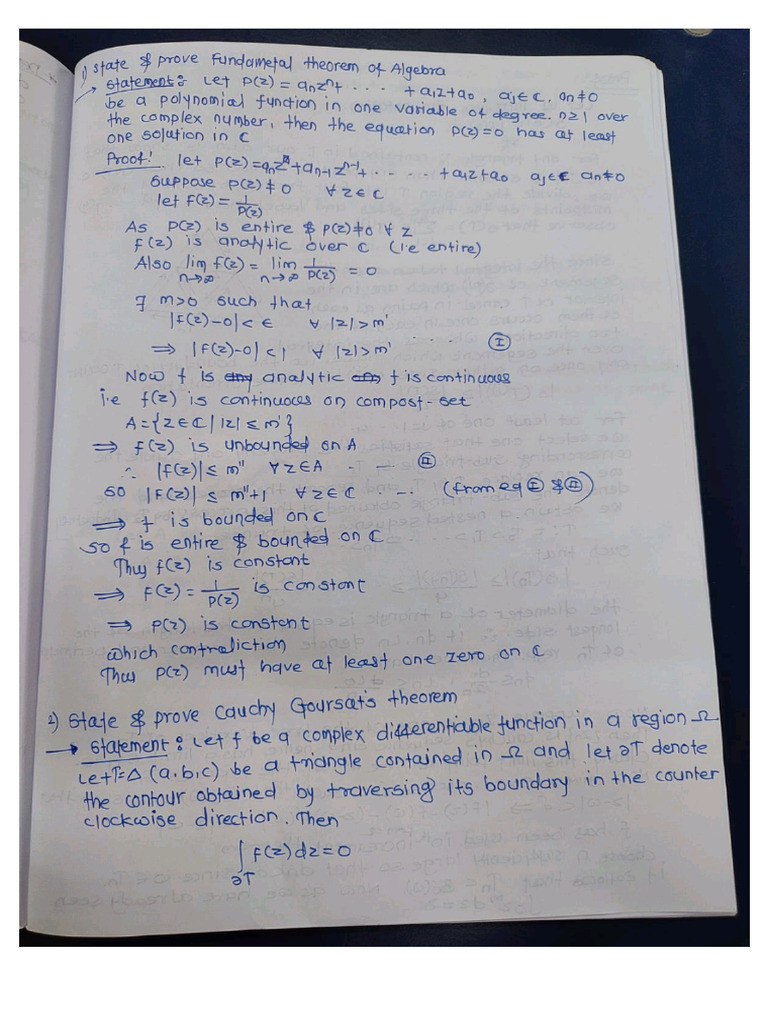 1) State & prove Fundametal theorem of Algebra
→ Statement: Let P(z) = aₙzⁿ+ ..... + a₁z+a₀, aⱼ∈ ℂ, aₙ≠0
be a polynomial function in one variable of degree. n≥1 over
the complex number, then the equation p(z)=0 has at least
one solution in ℂ
Proof: let P(z)=aₙzⁿ+aₙ₋₁zⁿ⁻¹+ ..... +a₁z+a₀ aⱼ∈ℂ aₙ≠0
Suppose P(z)≠0 ∀ z∈ℂ
let f(z) = 1/P(z)
As P(z) is entire & P(z)≠0 ∀ z
f(z) is analytic over ℂ (i.e entire)
Also lim n→∞ f(z) = lim n→∞ 1/P(z) = 0
∃ m>0 such that
|f(z)-0| < ∈ ∀ |z|>m'
⇒ |f(z)-0|<1 ∀ |z|>m' ... Ⓘ
Now f is analytic f is continuous
i.e f(z) is continuous on compost-set
A={z∈ℂ / |z| ≤ m'}
⇒ f(z) is unbounded on A
∴ |f(z)| ≤ m" ∀ z∈A - - Ⓘ︎Ⓘ
so |f(z)| ≤ m"+1 ∀ z∈ℂ ... (from eq Ⓘ & Ⓘ︎Ⓘ)
⇒ f is bounded on ℂ
so f is entire & bounded on ℂ
Thus f(z) is constant
⇒ f(z) = 1/P(z) is constant
⇒ P(z) is constant
which contraliction
Thus P(z) must have at least one zero on ℂ
2) State & prove Cauchy Goursat's theorem
→ Statement: Let f be a complex differentiable function in a region Ω
Let T=Δ (a.b.c) be a triangle contained in Ω and let ∂T denote
the contour obtained by traversing its boundary in the counter
clockwise direction. Then
∫∂T f(z)dz=0